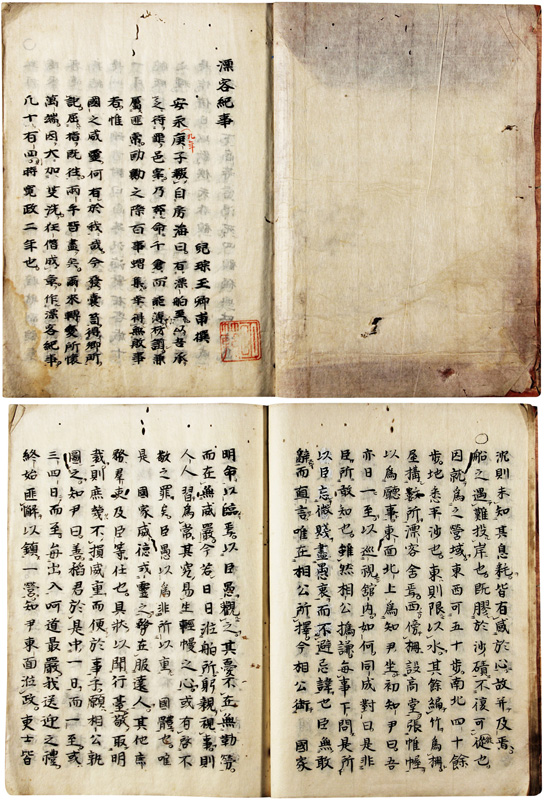 漂客紀事
兒琮玉卿甫撰
安永庚子報自房海曰有漂舶至以吾承
九年
乏待罪邑宰乃命千倉而兼
屬匪常劻勷之際百事蝟集卒得無敗事
者惟
國之威靈何有於我哉今發嚢笥得鄉所
記屈指既往兩年皆盡矣爾來轉變所懷
萬端因大加芟洗任僭成章作漂客紀事
凡十有四將寛政二年也
沉則未知其息耗皆有感於心故并及焉
船之遇難投岸也既膠於沙磧不復可從也
因就爲之營域東西可五十歩南北四十餘
歩地悉平沙也東則限以水其餘編竹爲柵
屋搆數所漂客舍焉西傍柵設高堂張帷幄
以爲聽事東面北上爲知尹坐初知尹曰吾
亦日一至以巡視舘内如何同成對曰是非
臣所敢知也雖然相公撝謙毎事下問是所
以臣忘微賤盡愚衷而不避忌諱也臣無敢
辭而面言唯在相公所擇今相公銜 國家
明命以臨焉以臣愚觀之其要不在無勒營
而在無威嚴今若日日涖舶所躬親視事則
人人習爲常其究易生輕慢之心或有啓不
敬之罪矣臣愚以爲非所以重 國體也唯
是 國家威德或靈之勢在服遠人其他庶
務羣吏及臣等任也具狀以聞行敬取明
裁則庶幾不損威重而便於事乎願相公孰
圖之知尹曰善稻君於是中一日而一至或
三四日而至毎出入呵道最嚴我送迎之禮
終始匪懈以鎮一營知尹東面涖政吏士皆